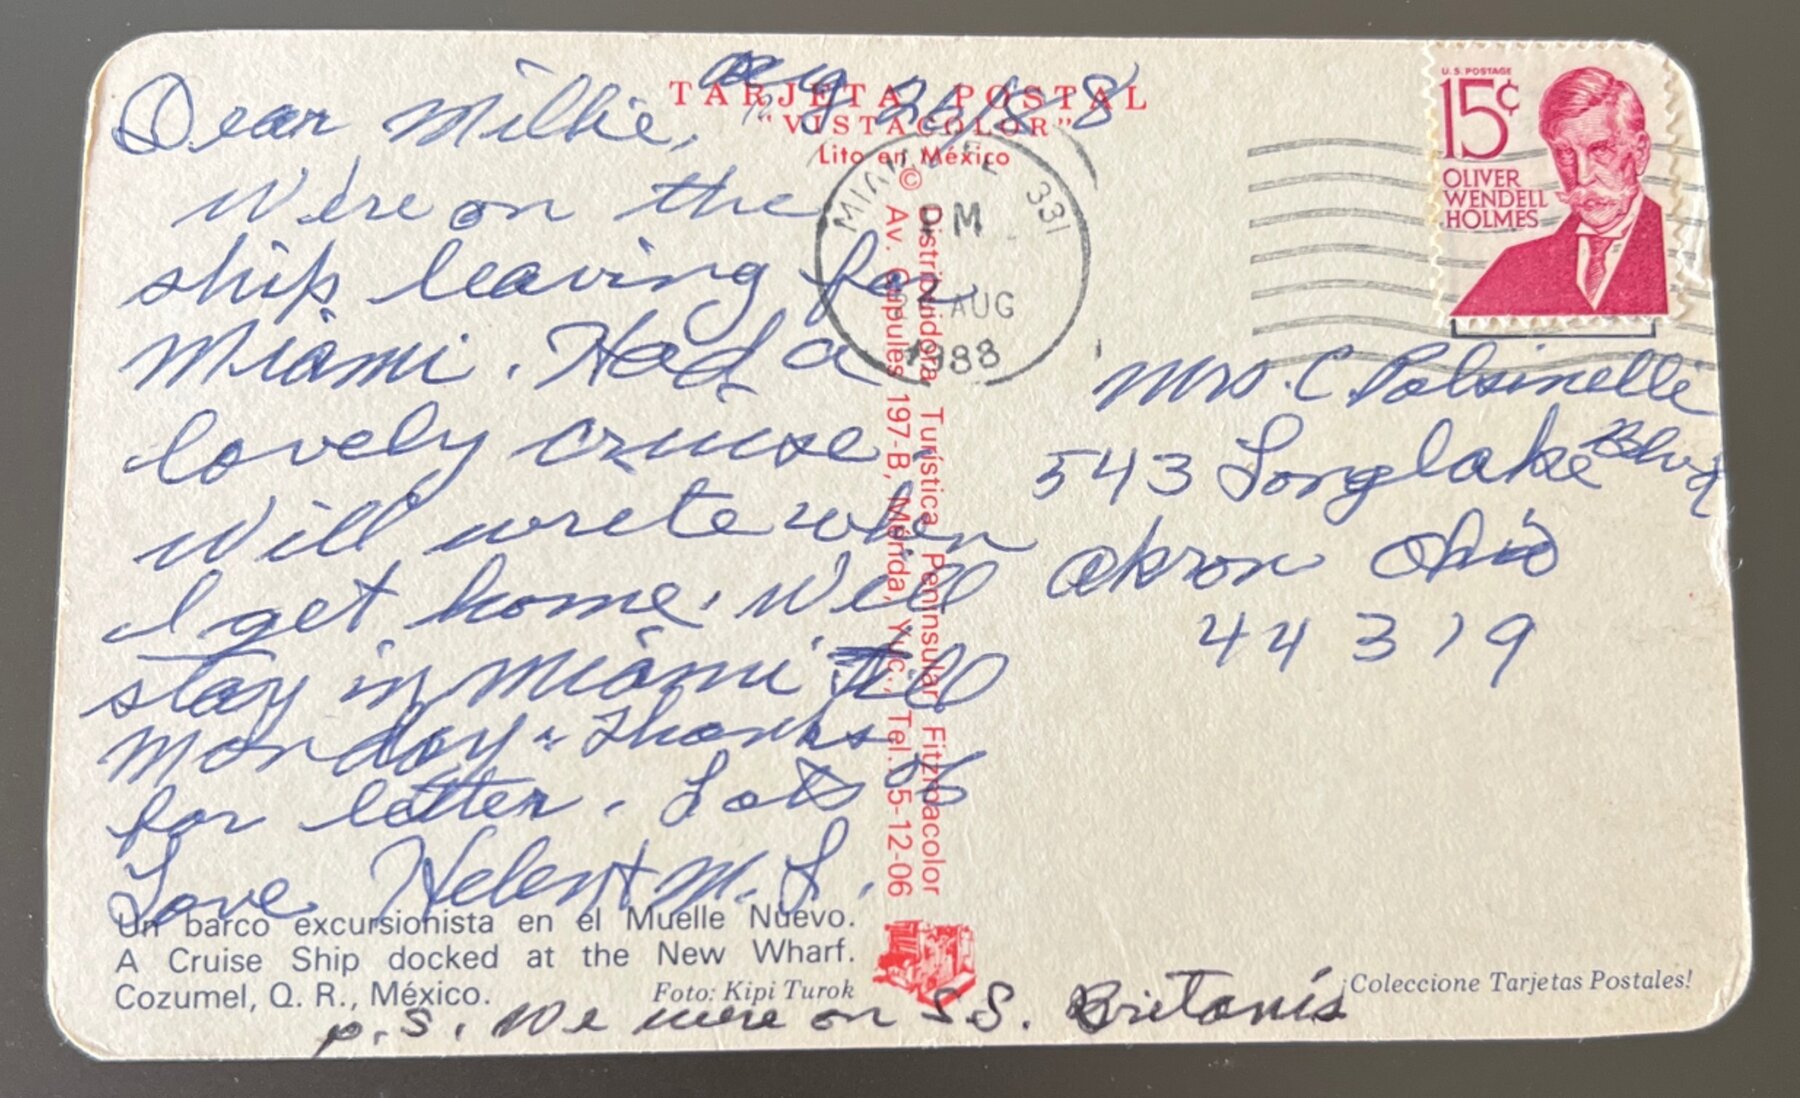 TARJETA POSTAL
"VISTACOLOR"
Lito en México
©
Dear Millie,
We're on the
ship leaving for
Miami. Had a
lovely cruise.
Will write when
I get home. Will
stay in Miami till
Monday. Thanks
for letter. Lots of
Love Helen + M. L.
Un barco excursionista en el Muelle Nuevo.
A Cruise Ship docked at the New Wharf.
Cozumel, Q. R., México.
Foto: Kipi Turok
p.s. We were on S.S. Britanis
Distribuidora Turística Peninsular Fitzmacolor
Av. Cupules 197-B, Mérida, Yuc., Tel. 5-12-06
MIAMI FL 331
PM
AUG
1988
U.S. POSTAGE
15¢
OLIVER
WENDELL
HOLMES
Mrs. C Polsinelli
543 Longlake Blvd
Akron Ohio
44319
¡Coleccione Tarjetas Postales!